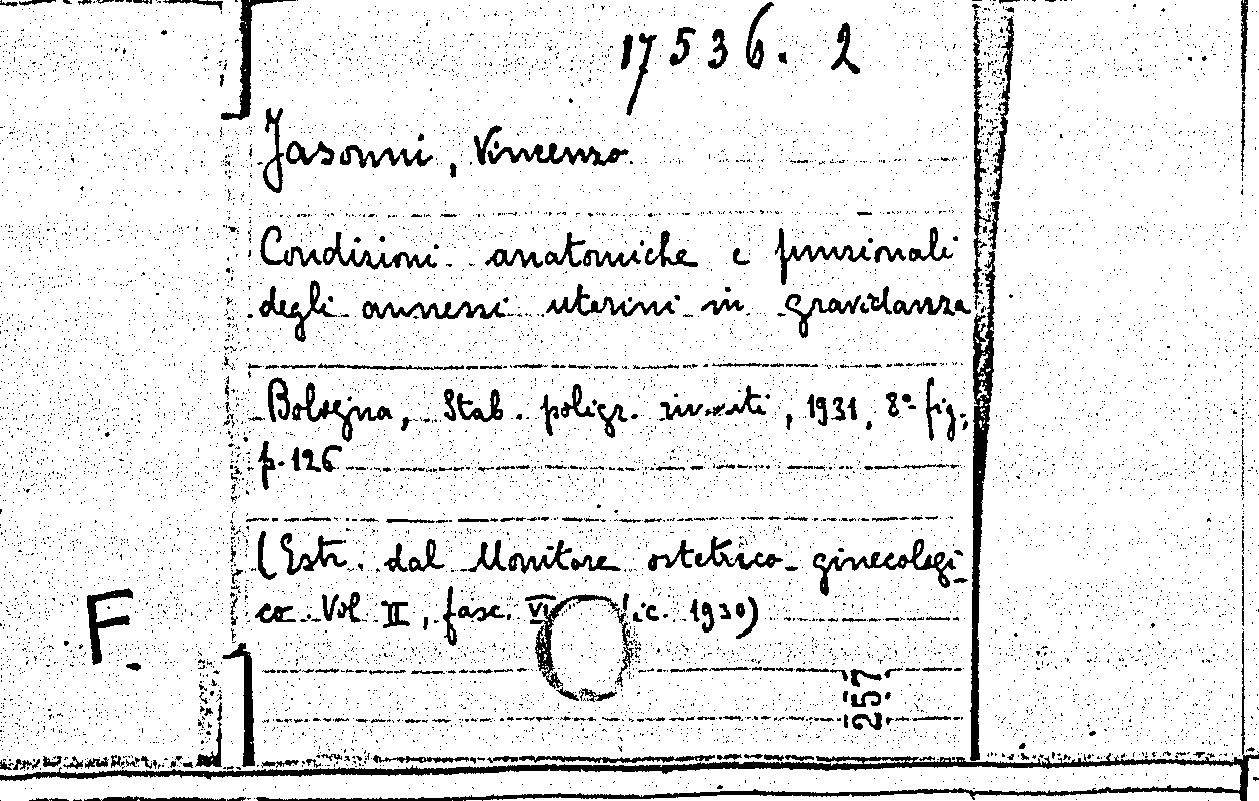 17536. 2
Jasonni, Vincenzo
Condizioni anatomiche e funzionali
degli annessi uterini in gravidanza
Bologna, Stab. poligr. riuniti, 1931, 8° fig.,
p. 126
(Estr. dal Monitore ostetrico-ginecologi-
co Vol II, fasc. VI ic. 1930)
F.
257